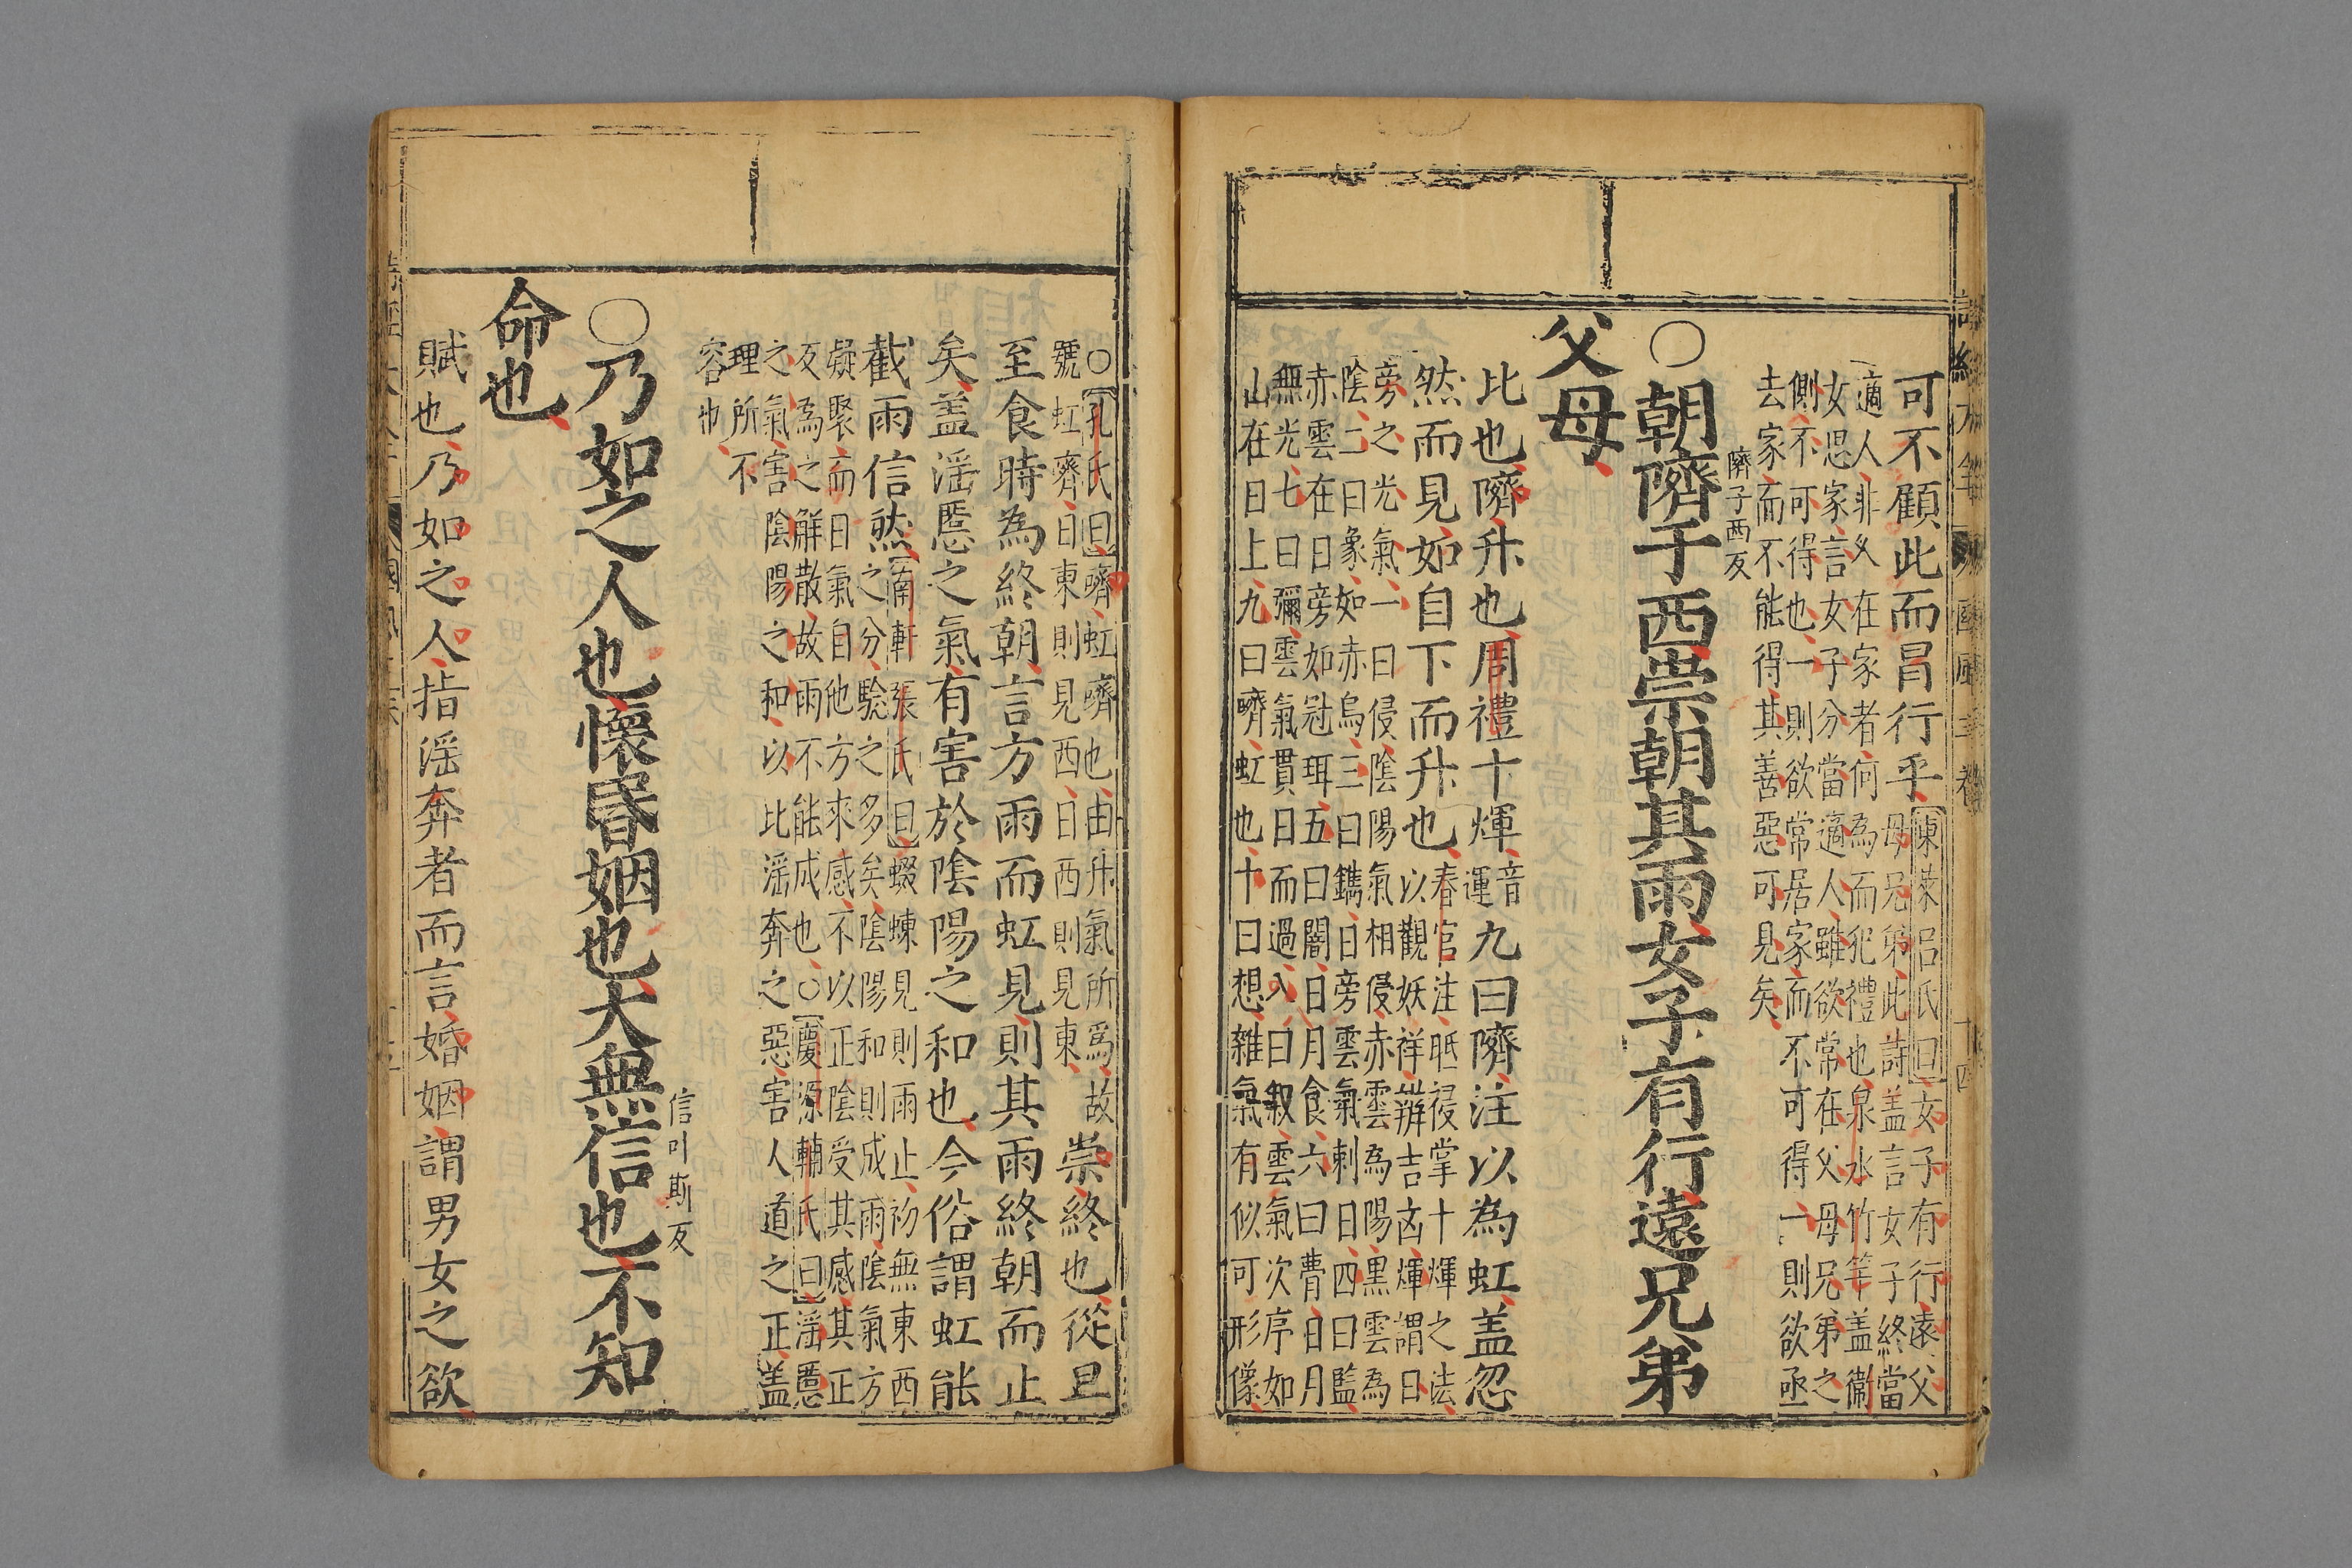 可不顧此而冒行乎
東萊呂氏曰女子有行遠父
母兄弟此詩盖言女子終當
適人非久在家者何為而犯禮也泉水竹竿盖衛
女思家言女子分當適人雖欲常在父母兄弟之
側不可得也一則欲常居家而不可得一則欲亟
去家而不能得其善惡可見矣
○朝隮于西崇朝其雨女子有行遠兄弟
隮子西反
父母
比也隮升也周禮十煇
音
運
九曰隮注以為虹盖忽
然而見如自下而升也
春官注眂祲掌十煇之法
以觀妖祥辨吉凶煇謂日
旁之光氣一曰侵陰陽氣相侵赤雲為陽黑雲為
陰二曰象如赤烏三曰鐫日旁雲氣刺日四曰監
赤雲在日旁如冠珥五曰闇日月食六曰瞢日月
無光七曰彌雲氣貫日而過八曰叙雲氣次序如
山在日上九曰隮虹也十曰想雜氣有似可形像
○孔氏曰隮虹隮也由升氣所為故
號虹隮日東則見西日西則見東
崇終也從旦
至食時為終朝言方雨而虹見則其雨終朝而止
矣盖淫慝之氣有害於陰陽之和也今俗謂虹能
截雨信然
南軒張氏曰蝃蝀見則雨止初無東西
之分驗之多矣陰陽和則成雨陰氣方
凝聚而日氣自他方來感不以正陰受其感其正
反為之解散故雨不能成也○慶源輔氏曰淫慝
之氣害陰陽之和以比淫奔之惡害人道之正盖
理所不
容也
○乃如之人也懷昏姻也大無信也不知
信叶斯反
命也
賦也乃如之人指淫奔者而言婚姻謂男女之欲